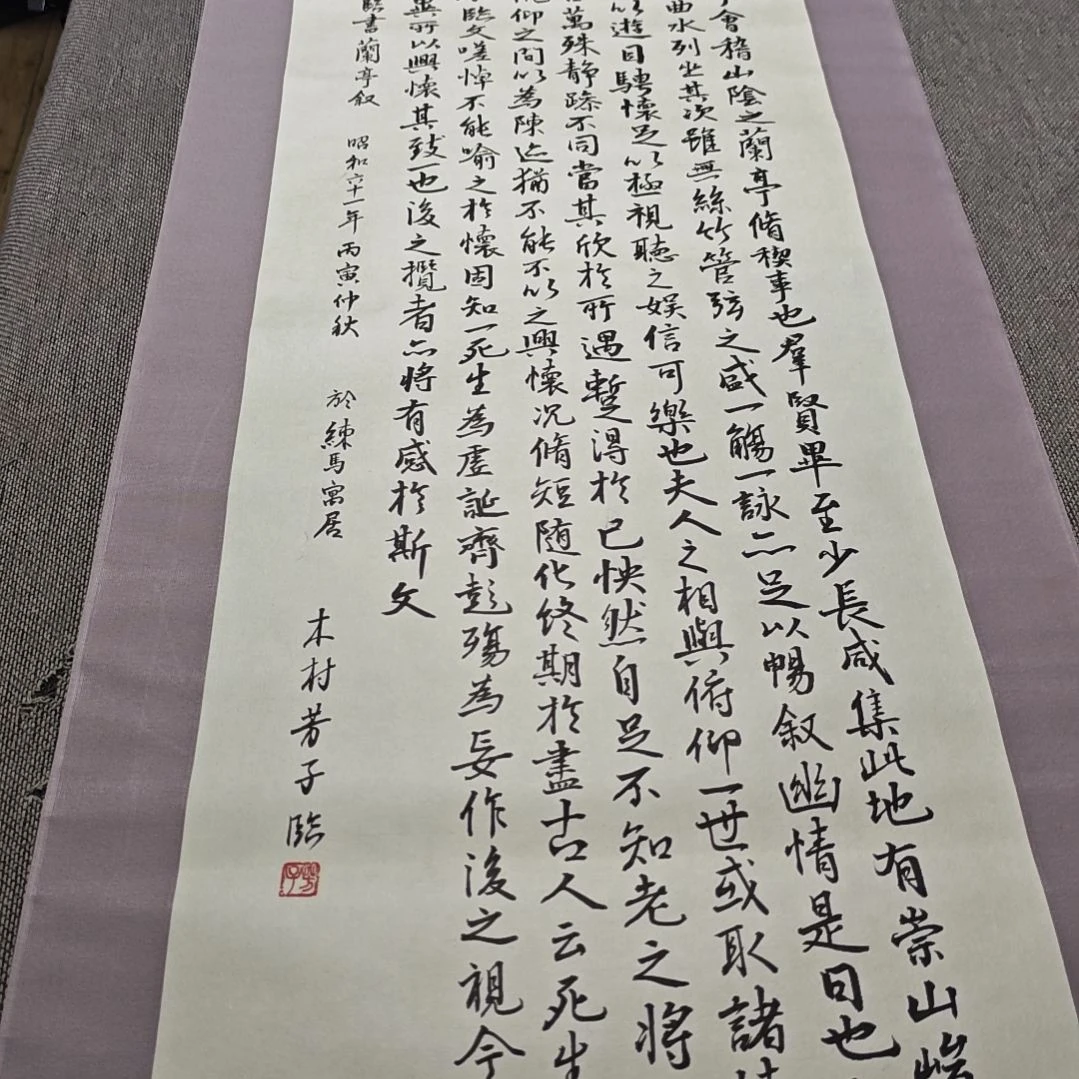 會稽山陰之蘭亭脩稧事也羣賢畢至少長咸集此地有崇山峻
曲水列坐其次雖無絲竹管弦之盛一觴一詠亦足以暢叙幽情是日也
以遊目騁懷足以極視聽之娛信可樂也夫人之相與俯仰一世或取諸
萬殊静躁不同當其欣於所遇暫得於己怏然自足不知老之將
俛仰之間以為陳迹猶不能不以之興懷況脩短随化終期於盡古人云死生
臨文嗟悼不能喻之於懷固知一死生為虚誕齊彭殤為妄作後之視今
異所以興懷其致一也後之攬者亦將有感於斯文
臨書蘭亭叙 昭和六十一年丙寅仲秋 於練馬寓居 木村芳子臨
芳子